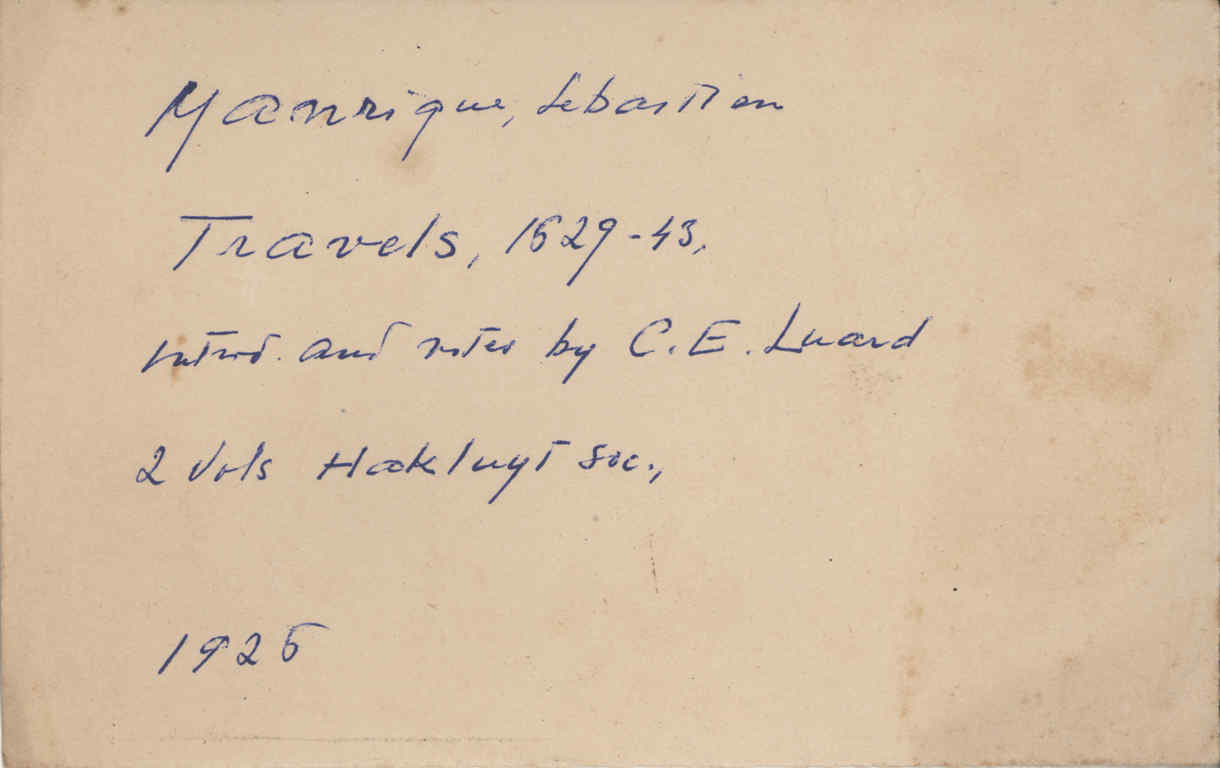 Manrique, Sebastian
Travels, 1629-43,
introd. and notes by C. E. Luard
2 Vols Hakluyt Soc.,
1926